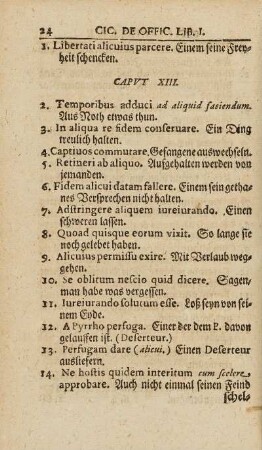 24 CIC. DE OFFIC. LIB. I.
1. Libertati alicuius parcere. Einem seine Frey-
heit schencken.
CAPVT XIII.
2. Temporibus adduci ad aliquid faciendum.
Aus Noth etwas thun.
3. In aliqua re fidem conseruare. Ein Ding
treulich halten.
4. Captiuos commutare. Gefangene auswechseln.
5. Retineri ab aliquo. Aufgehalten werden von
jemanden.
6. Fidem alicui datam fallere. Einem sein getha-
nes Versprechen nicht halten.
7. Adstringere aliquem iureiurando. Einen
schweren lassen.
8. Quoad quisque eorum vixit. So lange sie
noch gelebet haben.
9. Alicuius permissu exire. Mit Verlaub weg-
gehen.
10. Se oblitum nescio quid dicere. Sagen,
man habe was vergessen.
11. Iureiurando solutum esse. Loß seyn von sei-
nem Eyde.
12. A Pyrrho perfuga. Einer der dem P. davon
gelauffen ist. (Deserteur.)
13. Perfugam dare (alicui.) Einen Deserteur
ausliefern.
14. Ne hostis quidem interitum cum scelere
approbare. Auch nicht einmal seinen Feind
schel-